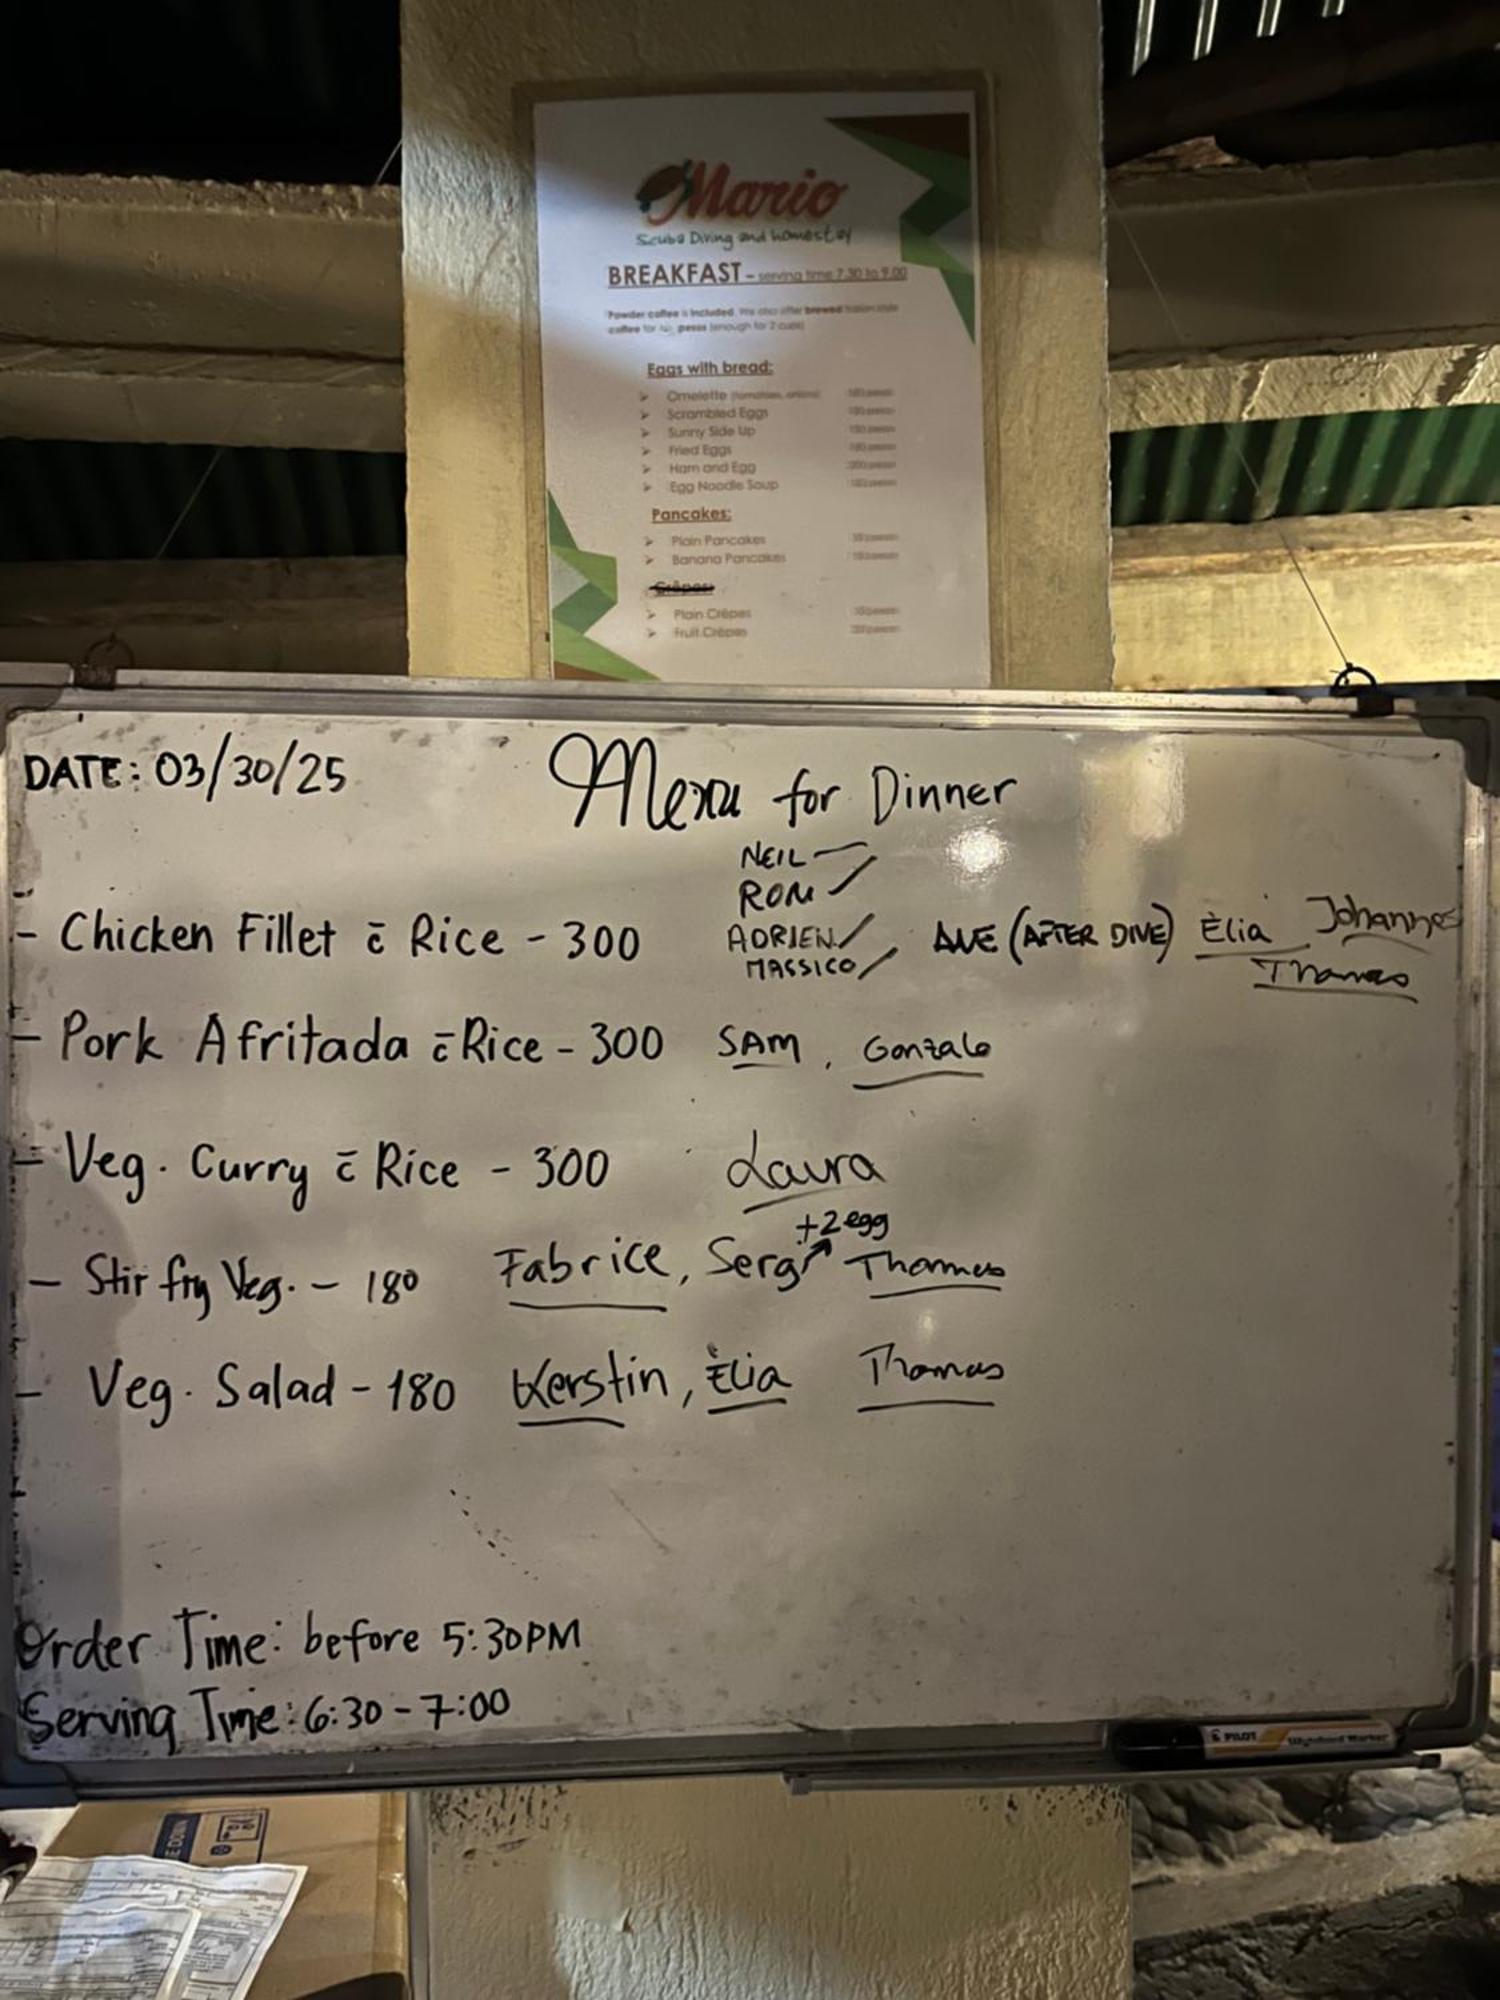 Mario
Scuba Diving and homestay
BREAKFAST – serving time 7.30 to 9.00
Powder coffee is included. We also offer brewed Italian style
coffee for pesos (enough for 2 cups)
Eggs with bread:
Omelette (tomatoes, onions)
Scrambled Eggs
Sunny Side Up
Fried Eggs
Ham and Egg
Egg Noodle Soup
Pancakes:
Plain Pancakes
Banana Pancakes
Crêpes:
Plain Crêpes
Fruit Crêpes
DATE: 03/30/25 Menu for Dinner
NEIL
ROM
- Chicken Fillet c̄ Rice - 300 ADRIEN, (AFTER DIVE) Èlia Johannes
MASSICO Thomas
- Pork Afritada c̄ Rice - 300 SAM, Gonzalo
- Veg. Curry c̄ Rice - 300 Laura
+2 egg
- Stir fry Veg. - 180 Fabrice, Sergi Thomas
- Veg. Salad - 180 Kerstin, Èlia Thomas
Order Time: before 5:30PM
Serving Time: 6:30 - 7:00
PILOT Wyteboard Marker